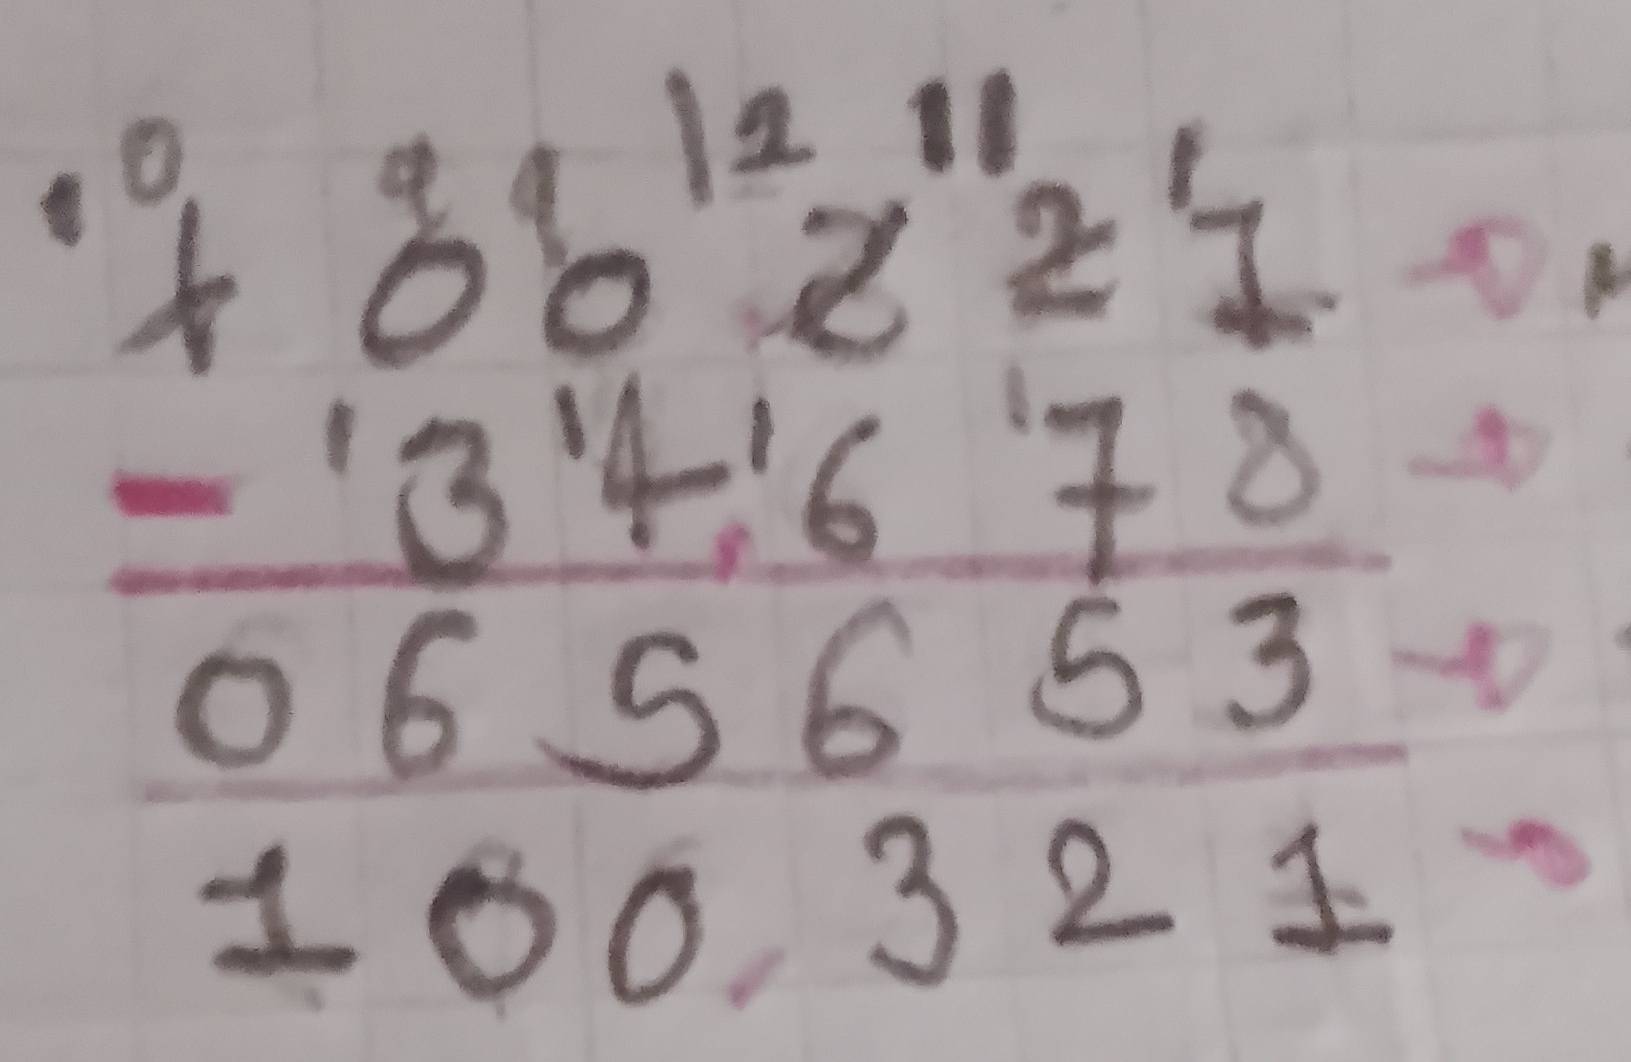 0 9 9 12 11 1
1 0 0 . 2 2 1
- 1 3 1 4 , 1 6 1 7 8
0 6 5 6 5 3
1 0 0 , 3 2 1